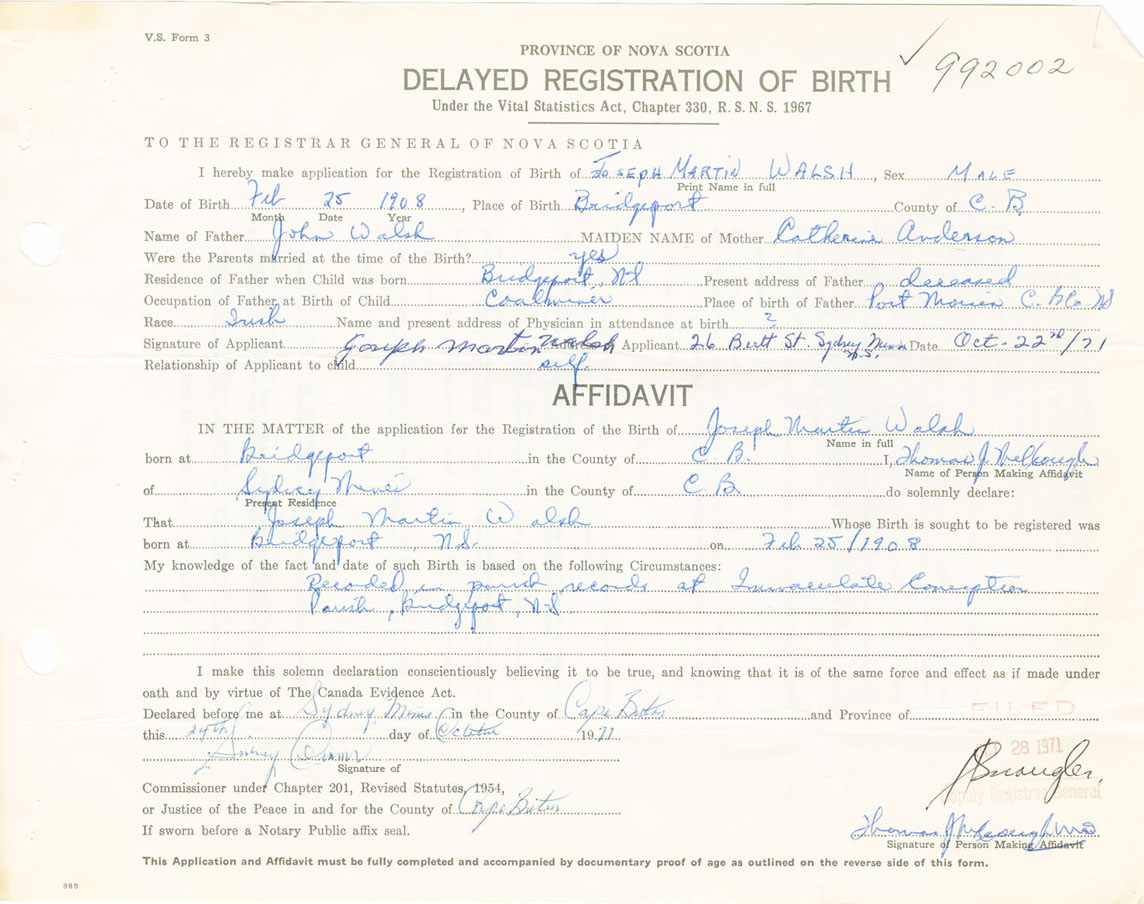 V.S. Form 3
PROVINCE OF NOVA SCOTIA
✓ 992002
DELAYED REGISTRATION OF BIRTH
Under the Vital Statistics Act, Chapter 330, R. S. N. S. 1967
TO THE REGISTRAR GENERAL OF NOVA SCOTIA
I hereby make application for the Registration of Birth of JOSEPH MARTIN WALSH, Sex MALE
Print Name in full
Date of Birth Feb 25 1908, Place of Birth Bridgeport County of C. B.
Month Date Year
Name of Father John Walsh MAIDEN NAME of Mother Catherine Anderson
Were the Parents married at the time of the Birth? yes
Residence of Father when Child was born Bridgeport, NS Present address of Father deceased
Occupation of Father at Birth of Child Coalminer Place of birth of Father Port Morien C. B. Co. NS
Race Irish Name and present address of Physician in attendance at birth ?
Signature of Applicant Joseph Martin Walsh Address of Applicant 26 St. Sydney Mines N.S. Date Oct. 22nd/71
Relationship of Applicant to child self.
AFFIDAVIT
IN THE MATTER of the application for the Registration of the Birth of Joseph Martin Walsh
Name in full
born at Bridgeport in the County of C. B. I, Thomas J.
Name of Person Making Affidavit
of Sydney Mines in the County of C B do solemnly declare:
Present Residence
That Joseph Martin Walsh Whose Birth is sought to be registered was
born at Bridgeport, N.S. on Feb 25/1908
My knowledge of the fact and date of such Birth is based on the following Circumstances:
Recorded in parish records at Immaculate Conception
Parish, Bridgeport, N.S
I make this solemn declaration conscientiously believing it to be true, and knowing that it is of the same force and effect as if made under
oath and by virtue of The Canada Evidence Act.
Declared before me at Sydney Mines in the County of Cape Breton and Province of
FILED
this 24th day of October 1971
28 1971
Signature of
Commissioner under Chapter 201, Revised Statutes, 1954,
Deputy Registrar General
or Justice of the Peace in and for the County of Cape Breton
If sworn before a Notary Public affix seal.
Thomas J
Signature of Person Making Affidavit
This Application and Affidavit must be fully completed and accompanied by documentary proof of age as outlined on the reverse side of this form.
385